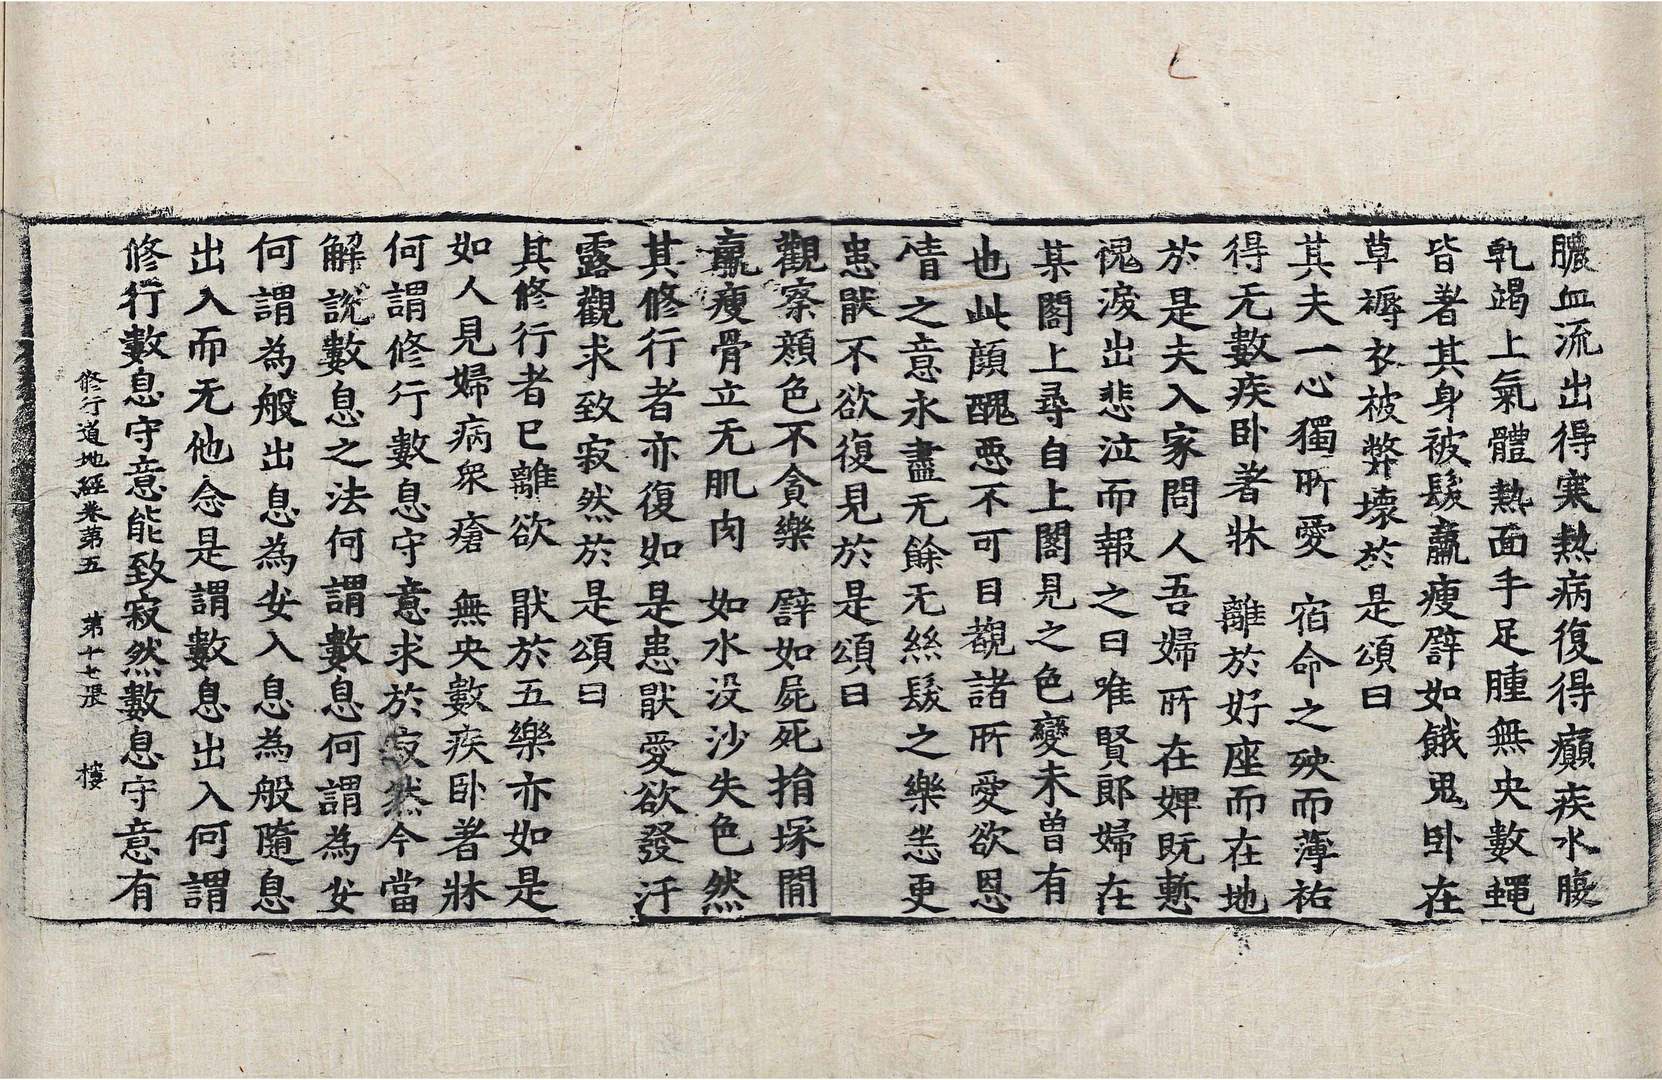 膿血流出得寒熱病復得癲疾水腹
乹竭上氣體熱面手足腫無央數蠅
皆著其身被髮羸瘦譬如餓鬼卧在
草褥衣被弊壞於是頌曰
其夫一心獨所愛　宿命之殃而薄祐
得无數疾卧著牀　離於好座而在地
於是夫入家問人吾婦所在婢旣慙
愧淚出悲泣而報之曰唯賢郎婦在
某閣上尋自上閣見之色變未曾有
也此顔醜惡不可目覩諸所愛欲恩
情之意永盡无餘无絲髮之樂恙更
患猒不欲復見於是頌曰
觀察顔色不貪樂　譬如屍死捐塚間
羸瘦骨立无肌肉　如水没沙失色然
其修行者亦復如是患猒愛欲發汙
露觀求致寂然於是頌曰
其修行者已離欲　猒於五樂亦如是
如人見婦病衆瘡　無央數疾卧著牀
何謂修行數息守意求於寂然今當
解説數息之法何謂數息何謂為安
何謂為般出息為安入息為般隨息
出入而无他念是謂數息出入何謂
修行數息守意能致寂然數息守意有
修行道地經卷第五　第十七張　樓